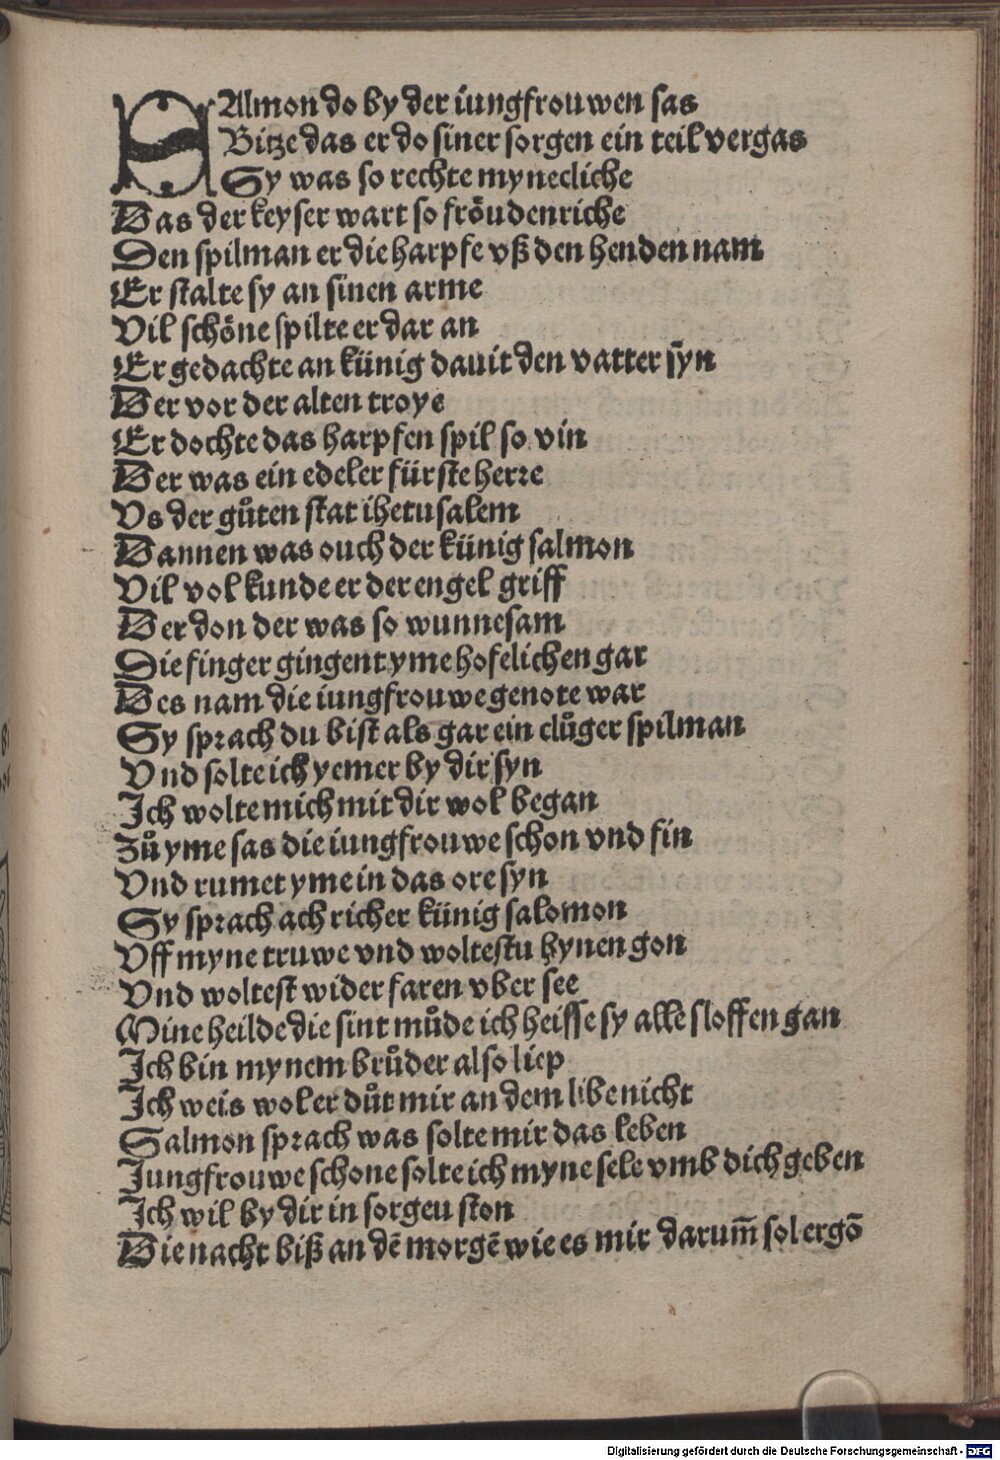 SAlmon do by der iungfrouwen sas
Bitze das er do siner sorgen ein teil vergas
Sy was so rechte mynecliche
Das der keyser wart so fröudenriche
Den spilman er die harpfe vß den henden nam
Er stalte sy an sinen arme
Vil schöne spilte er dar an
Er gedachte an künig dauit den vatter syn
Der vor der alten troye
Er dochte das harpfen spil so vin
Der was ein edeler fürste herre
Vs der gůten stat iherusalem
Dannen was ouch der künig salmon
Vil vol kunde er der engel griff
Der don der was so wunnesam
Die finger gingent yme hofelichen gar
Des nam die iungfrouwe genote war
Sy sprach du bist als gar ein clůger spilman
Vnd solte ich yemer by dir syn
Ich wolte mich mit dir wol began
Zů yme sas die iungfrouwe schon vnd fin
Vnd rumet yme in das ore syn
Sy sprach ach richer künig salomon
Vff myne truwe vnd woltestu hynen gon
Vnd woltest wider faren vber see
Mine heilde die sint můde ich heisse sy alle sloffen gan
Ich bin mynem brůder also liep
Ich weis wol er důt mir an dem libe nicht
Salmon sprach was solte mir das leben
Jungfrouwe schone solte ich myne sele vmb dich geben
Ich wil by dir in sorgeu ston
Die nacht biß an dē morgē wie es mir darum̄ sol ergō
Digitalisierung gefördert durch die Deutsche Forschungsgemeinschaft - DFG